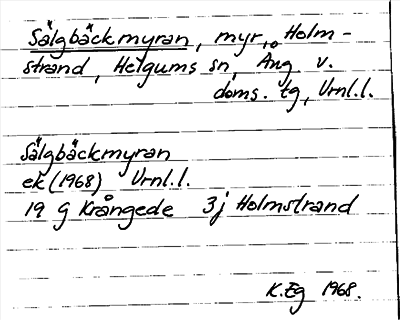 Sälgbäckmyran, myr, Holm-
strand, Helgums sn, Ång v.
doms. tg, Vrnl.l.
Sälgbäckmyran
ek (1968) Vrnl.l.
19 G Krångede 3j Holmstrand
K.Eg 1968.